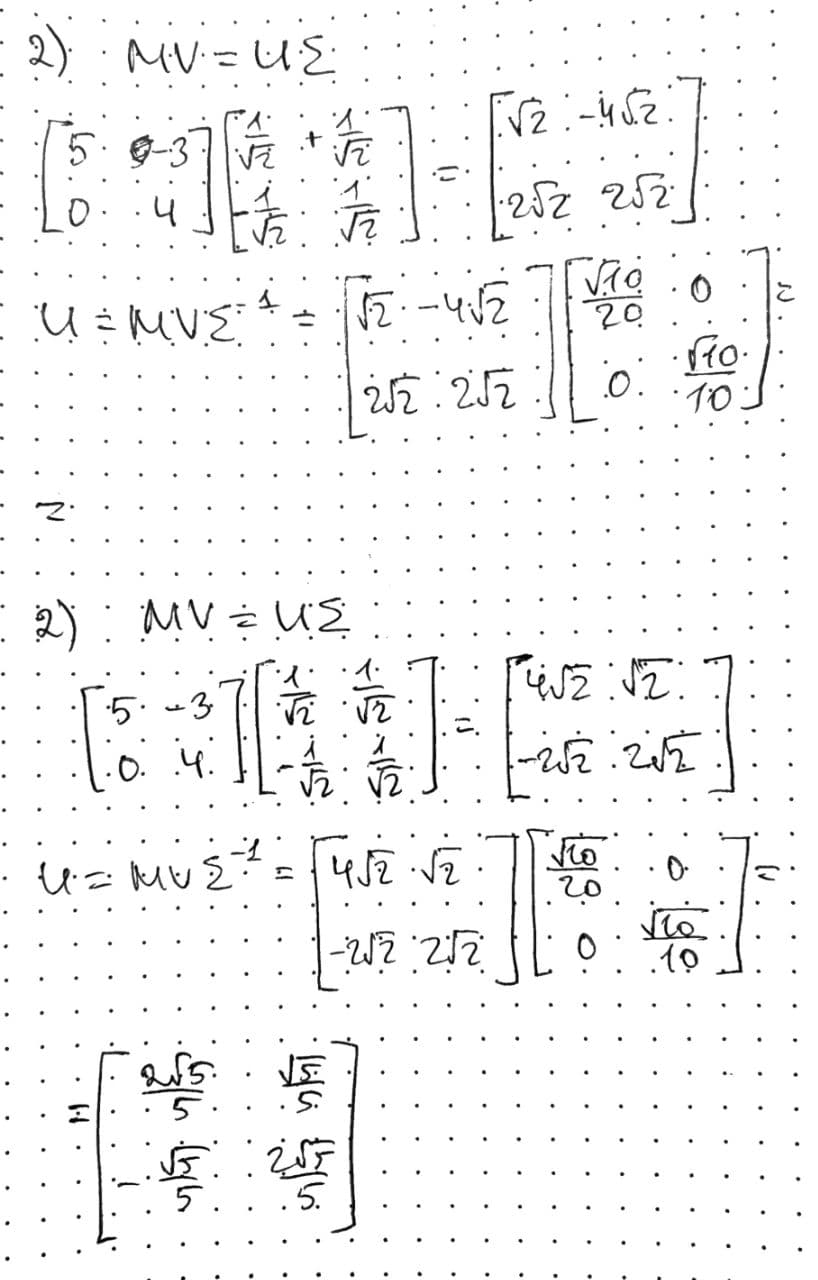 2) MV = UΣ
[5 -3; 0 4] [1/√2 + 1/√2; -1/√2 1/√2] = [√2 -4√2; 2√2 2√2]
U = MVΣ⁻¹ = [√2 -4√2; 2√2 2√2] [√10/20 0; 0 √10/10] =
=
2) MV = UΣ
[5 -3; 0 4] [1/√2 1/√2; -1/√2 1/√2] = [4√2 √2; -2√2 2√2]
U = MVΣ⁻¹ = [4√2 √2; -2√2 2√2] [√10/20 0; 0 √10/10] =
= [2√5/5 √5/5; -√5/5 2√5/5]